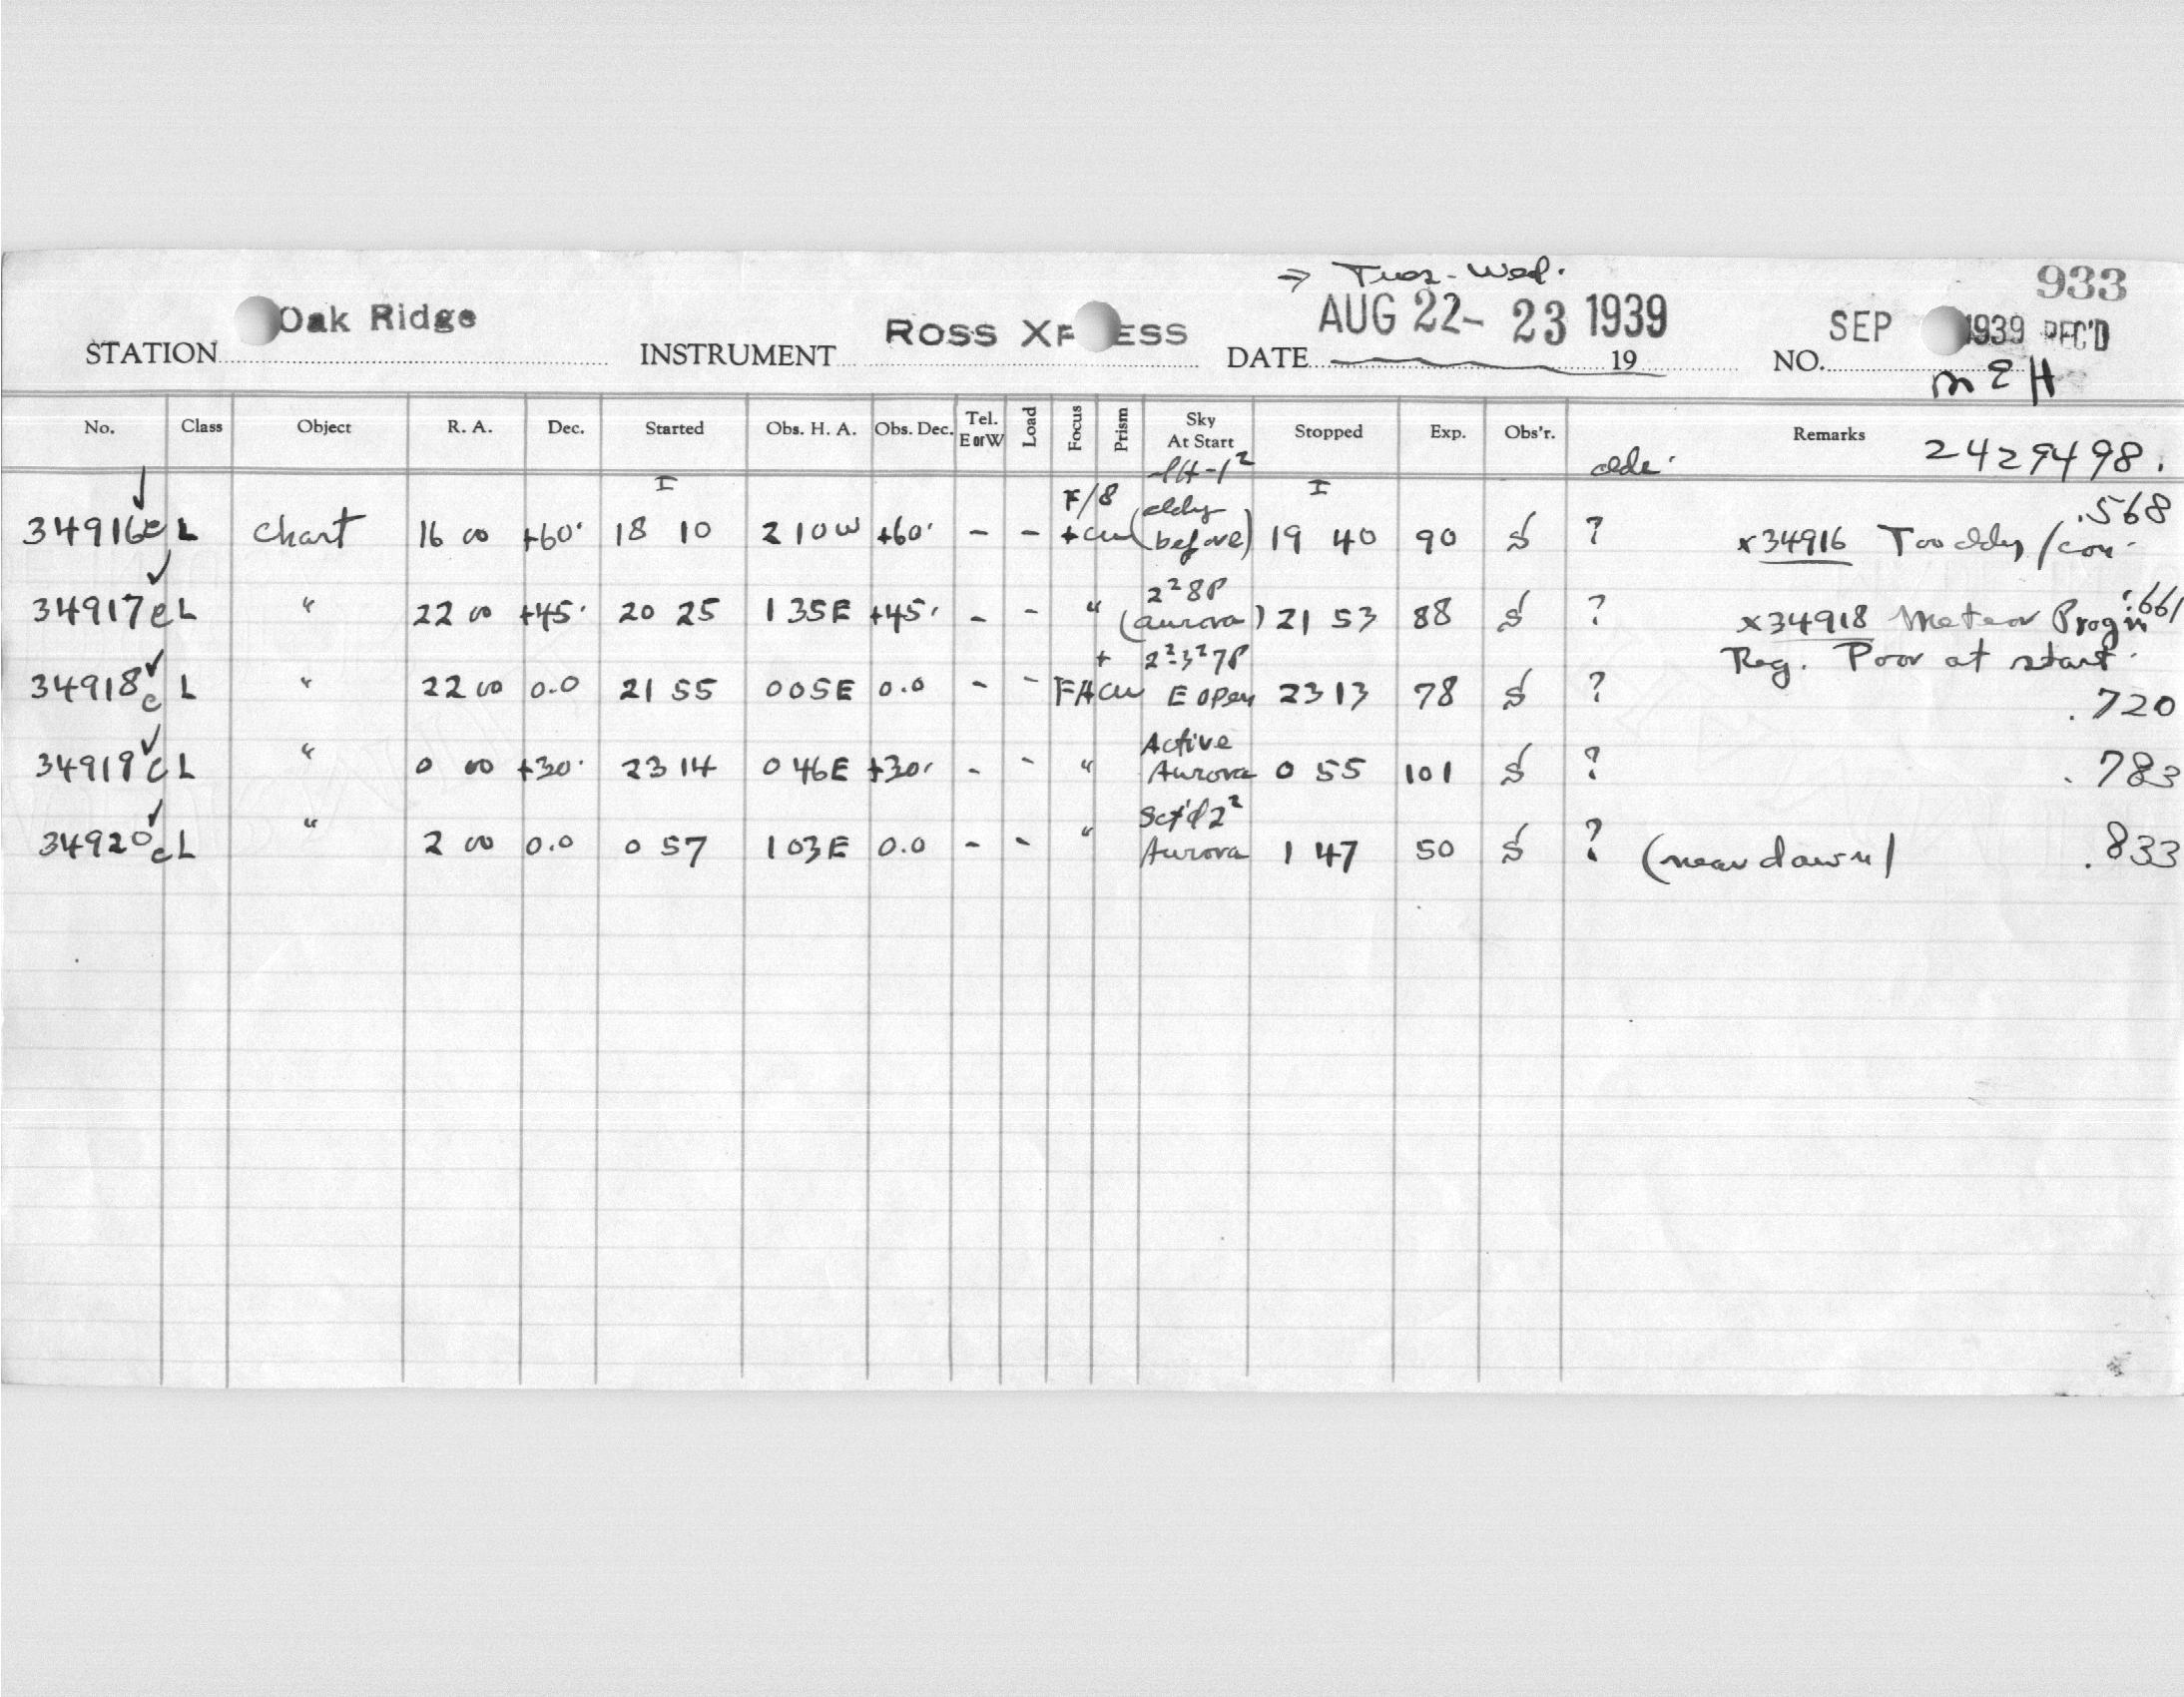 → Tues - Wed.
933
STATION Oak Ridge INSTRUMENT ROSS XPRESS DATE AUG 22-23 1939 19 NO. SEP 1939 REC'D
M E H
No. Class Object R. A. Dec. Started Obs. H. A. Obs. Dec. Tel. E or W Load Focus Prism Sky At Start Stopped Exp. Obs'r. Remarks
2429498.
I F/8 I .568
34916c L Chart 16 00 +60· 18 10 2 10W +60· - - +cw (cldy before) 19 40 90 S ? x34916 Too cldy /
34917c L " 22 00 +45· 20 25 1 35E +45· - - " 2² 8P (aurora) 21 53 88 S ? x34918 Meteor Prog in .661
Reg. Poor at start.
34918c L " 22 00 0.0 21 55 0 05E 0.0 - - + FHcw 2²-3² 7P E open 23 13 78 S ? .720
34919c L " 0 00 +30· 23 14 0 46E +30· - - " Active Aurora 0 55 101 S ? .783
34920c L " 2 00 0.0 0 57 1 03E 0.0 - - " Sct'd 2² Aurora 1 47 50 S ? (near dawn) .833